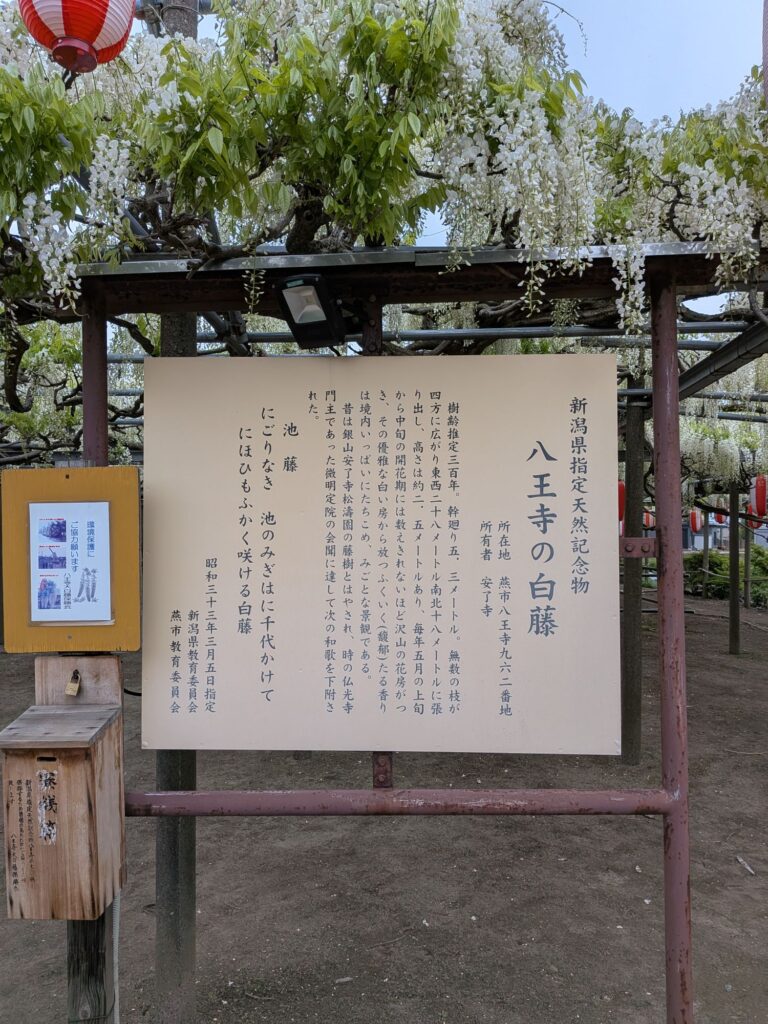 新潟県指定天然記念物
八王寺の白藤
所在地　燕市八王寺九六二番地
所有者　安了寺
樹齢推定三百年。幹廻り五、三メートル。無数の枝が
四方に広がり東西二十八メートル南北十八メートルに張
り出し、高さは約二、五メートルあり、毎年五月の上旬
から中旬の開花期には数えきれないほど沢山の花房がつ
き、その優雅な白い房から放つふくいく（馥郁）たる香り
は境内いっぱいにたちこめ、みごとな景観である。
昔は銀山安了寺松濤園の藤樹とはやされ、時の仏光寺
門主であった微明定院の会聞に達して次の和歌を下附さ
れた。
池藤
にごりなき　池のみぎはに千代かけて
にほひもふかく咲ける白藤
昭和三十三年三月五日指定
新潟県教育委員会
燕市教育委員会
環境保護に
ご協力願います